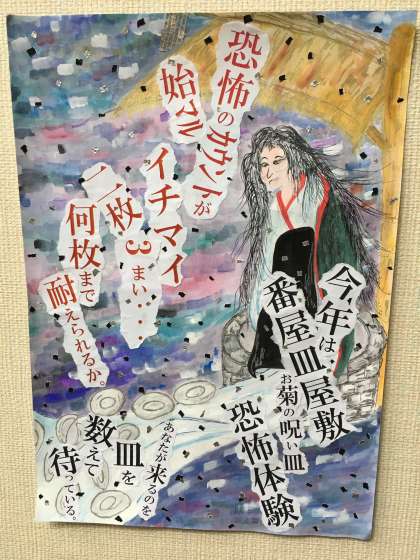 恐怖のカウントが
始マル
イチマイ
二枚3まい・・・
何枚まで
耐えられるか。
今年は・・
番屋皿屋敷
お菊の呪い皿
恐怖体験
あなたが来るのを
皿を
数えて
待っている。